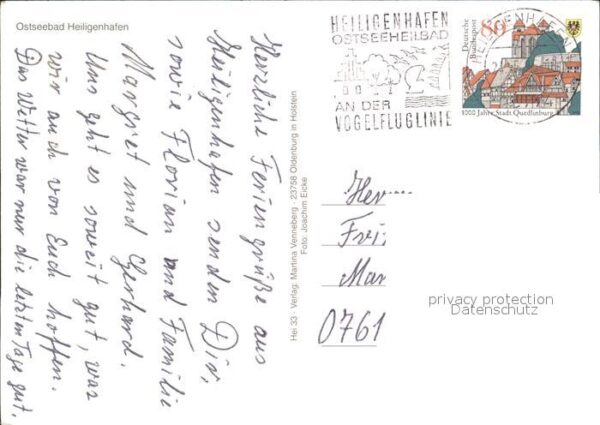 Ostseebad Heiligenhafen
Herzliche Feriengrüße aus
Heiligenhafen senden Dir,
sowie Florian und Familie
Margret und Gerhard.
Uns geht es soweit gut, was
wir auch von Euch hoffen.
Das Wetter war nur die letzten Tage gut.
Hei 33 - Verlag: Martina Venneberg - 23758 Oldenburg in Holstein
Foto: Joachim Eicke
HEILIGENHAFEN
OSTSEEHEILBAD
AN DER
VOGELFLUGLINIE
Deutsche
Bundespost
80
1000 Jahre Stadt Quedlinburg
HEILIGENHAFEN
Her
Mar
0761
privacy protection
Datenschutz